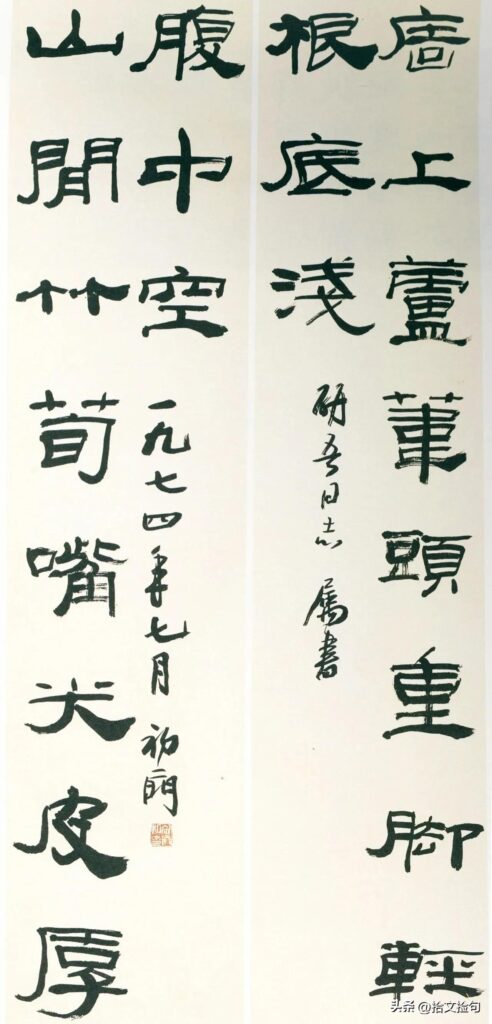 廧上蘆葦頭重脚輕
根底淺
研吾同志 属書
山間竹荀嘴尖皮厚
腹中空
一九七四年七月
头条 @拾文捡句